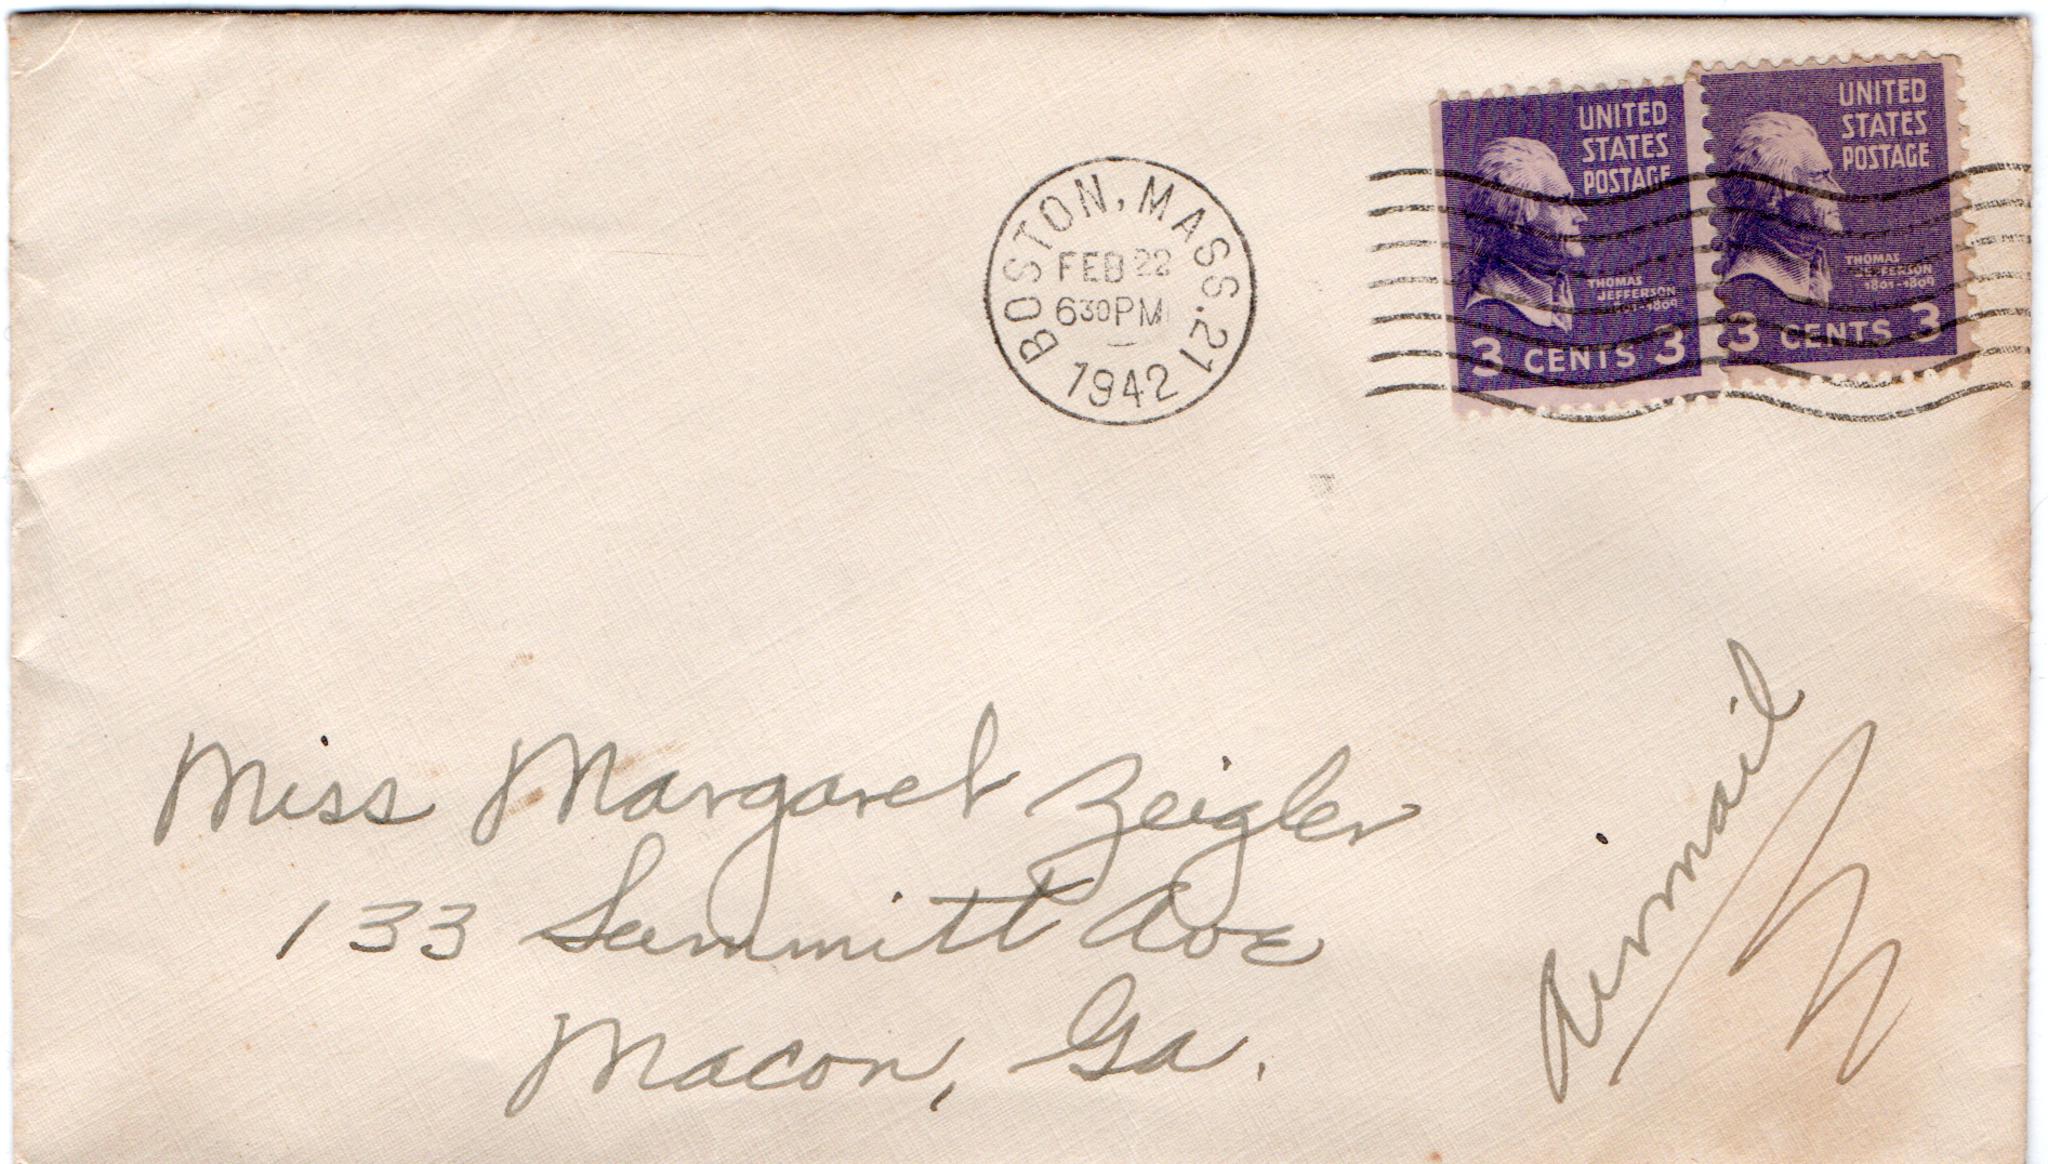 BOSTON, MASS. 21
FEB 22
630PM
1942
UNITED
STATES
POSTAGE
THOMAS
JEFFERSON
1801-1809
3 CENTS 3
UNITED
STATES
POSTAGE
THOMAS
JEFFERSON
1801-1809
3 CENTS 3
Miss Margaret Zeigler
133 Summitt Ave
Macon, Ga.
Airmail